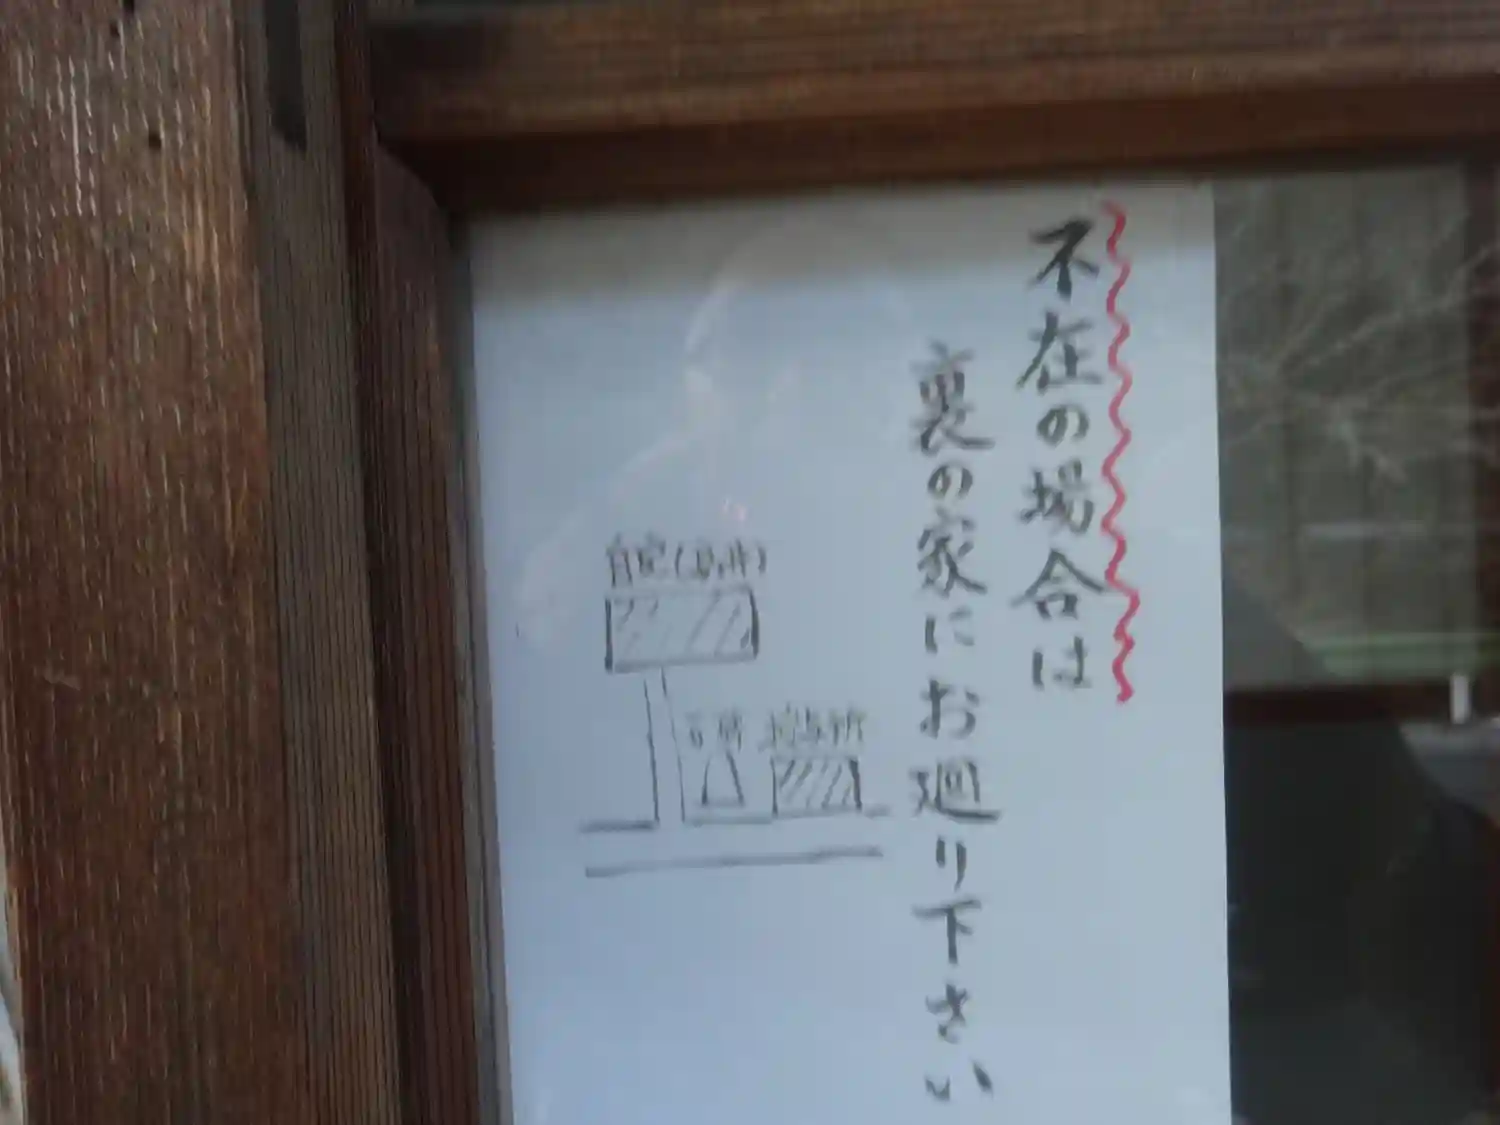 不在の場合は
裏の家にお廻り下さい
自宅